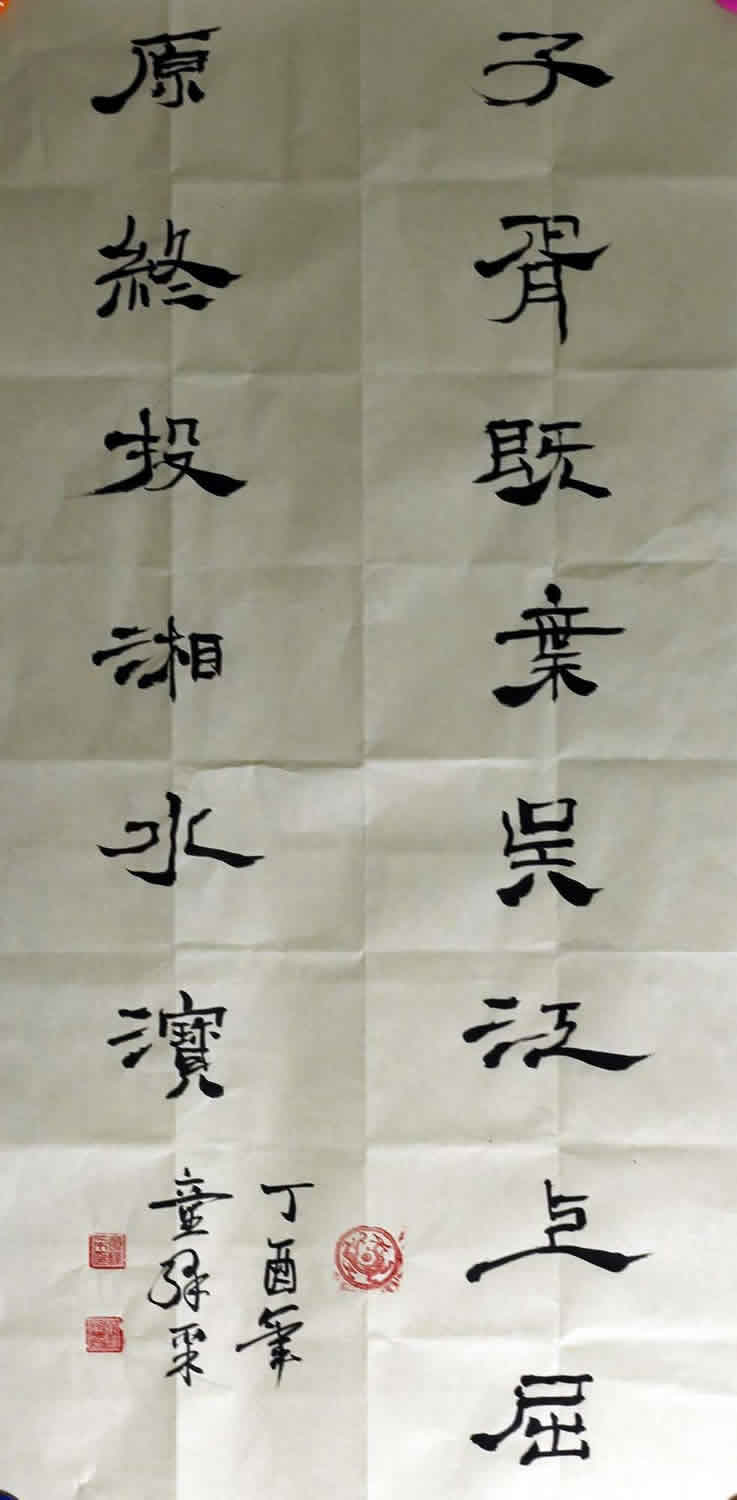 子胥既棄吳江上屈
原終投湘水濱
丁酉年
童